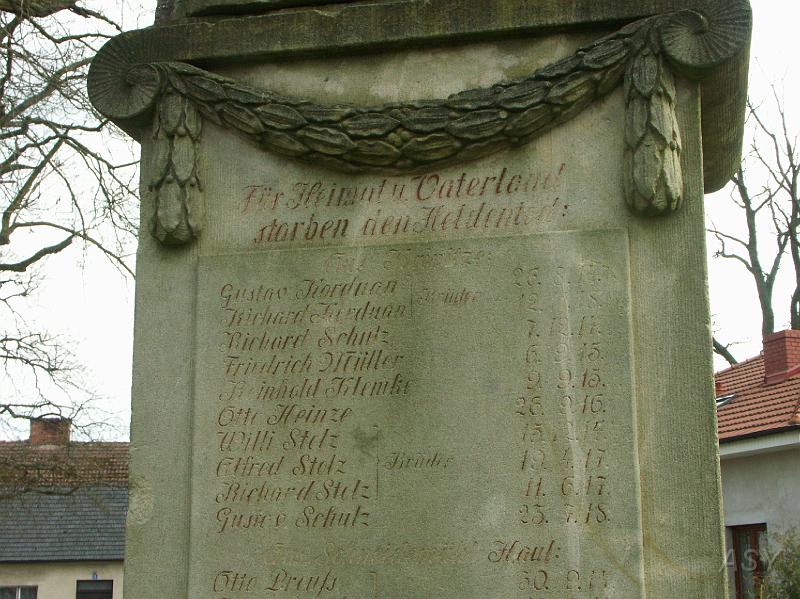 Für Heimat u. Vaterland
starben den Heldentod:
Gustav Korduan Brüder
Richard Korduan
Richard Schulz
Friedrich Müller 6. 9. 15.
Reinhold Klemke 9. 9. 15.
Otto Heinze 26. 9. 16.
Willi Stolz
Alfred Stolz Brüder 19. 4. 17.
Richard Stolz 11. 6. 17.
Gustav Schulz 23. 7. 18.
Haul:
Otto Preuß
ASY